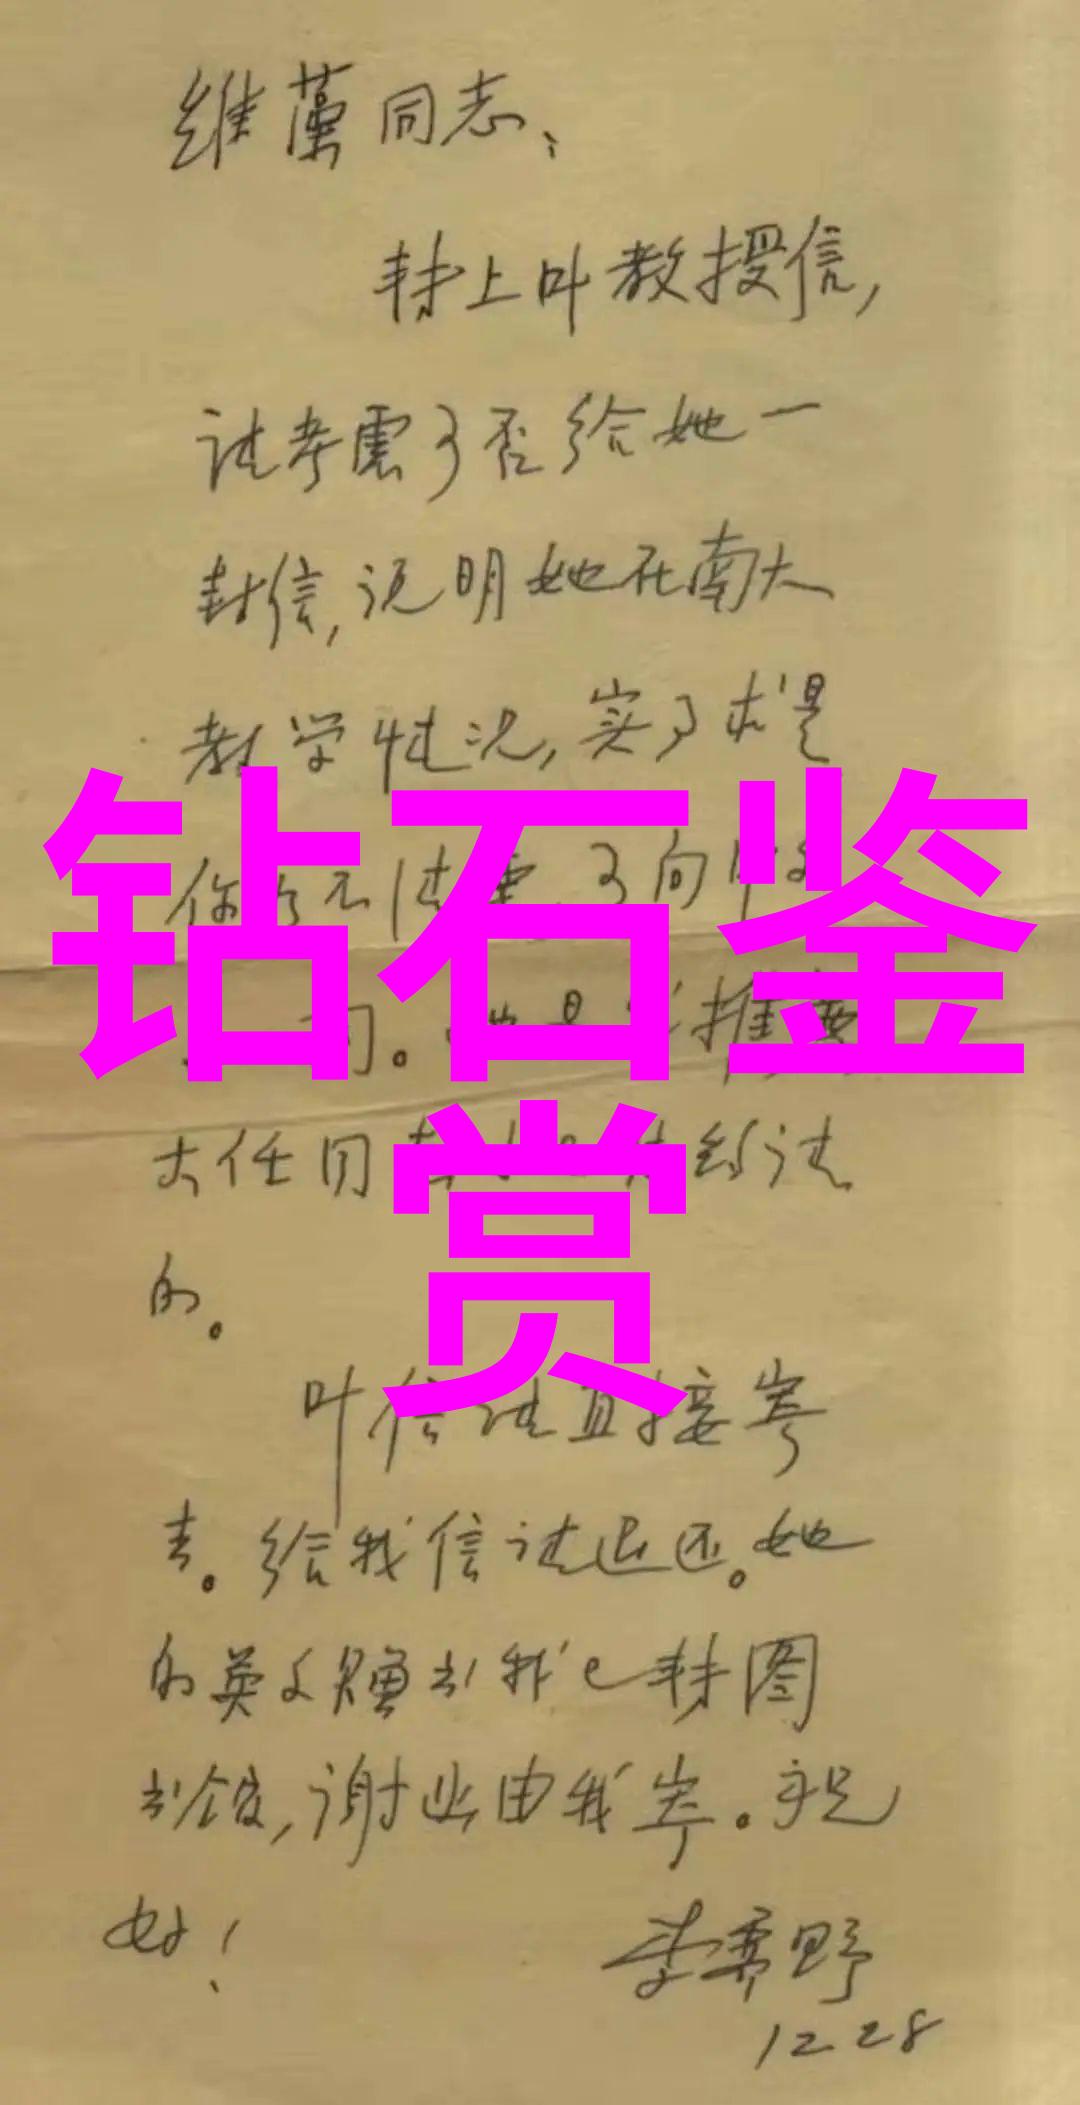 维藻同志:
转上叶教授信,
请考虑可否给她一
封信,说明她在南大
教学情况,实事求是
你如不清楚,可向中文
钻石鉴
赏
推
大任
的。
叶信请直接寄
去。给我信请退还。她
的英文赠书我已转图
书馆,谢此由我寄。祝
好!
李霁野
12 28